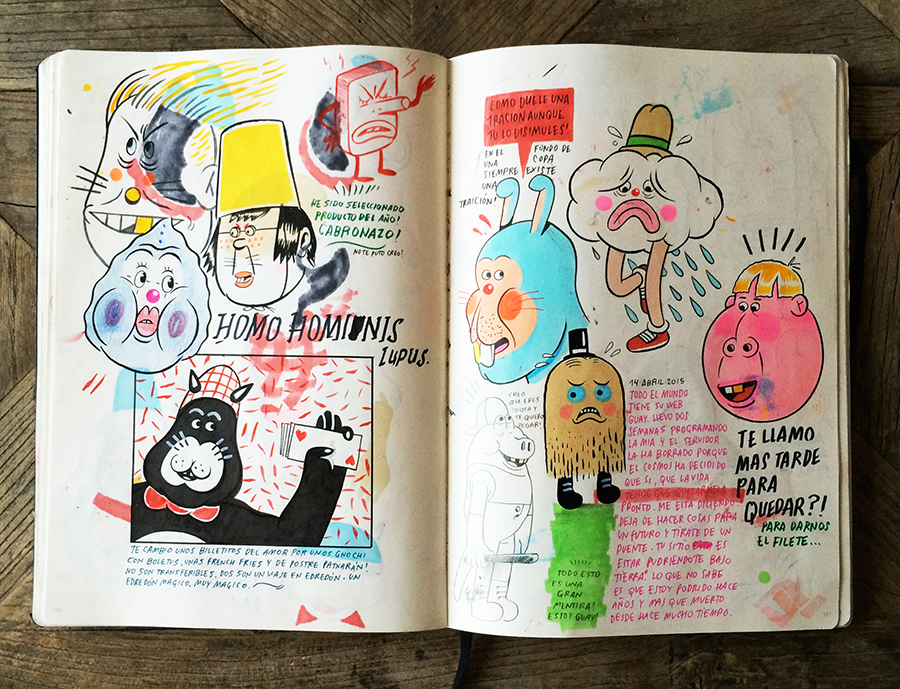 HE SIDO SELECCIONADO
PRODUCTO DEL AÑO!
CABRONAZO!
NOTE PUTO CREO!
HOMO HOMIUNIS
LUPUS.
TE CAMBIO UNOS BILLETITOS DEL AMOR POR UNOS GNOCHI
CON BOLETUS, UNAS FRENCH FRIES Y DE POSTRE PATXARÁN!
NO SON TRANSFERIBLES, DOS SON UN VIAJE EN EDREDÓN - UN
EDREDÓN MAGICO, MUY MAGICO.
COMO DUELE UNA
TRACION AUNQUE
TU LO DISIMULES!
EN EL FONDO DE
UNA COPA
SIEMPRE EXISTE
UNA
TRAICIÓN!
CREO
QUE ERES
IDIOTA Y
TE QUIERO
PEGAR!
14 ABRIL 2015
TODO EL MUNDO
TIENE SU WEB
GUAY. LLEVO DOS
SEMANAS PROGRAMANDO
LA MIA Y EL SERVIDOR
LA HA BORRADO PORQUE
EL COSMOS HA DECIDIDO
QUE SI, QUE LA VIDA
TENGO QUE
PRONTO. ME ESTA DICIENDO
DEJA DE HACER COSAS PARA
UN FUTURO Y TIRATE DE UN
PUENTE. TU SITIO ES
ESTAR PUDRIENDOTE BAJO
TIERRA! LO QUE NO SABE
ES QUE ESTOY PODRIDO HACE
AÑOS Y MAS QUE MUERTO
DESDE HACE MUCHO TIEMPO.
TE LLAMO
MAS TARDE
PARA
QUEDAR?!
PARA DARNOS
EL FILETE...
TODO ESTO
ES UNA
GRAN
MENTIRA!
ESTOY GUAY!